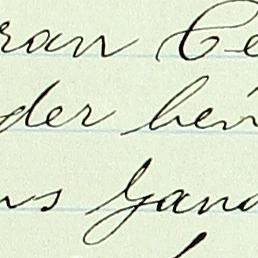 ran Ce
der hen
ns Gand